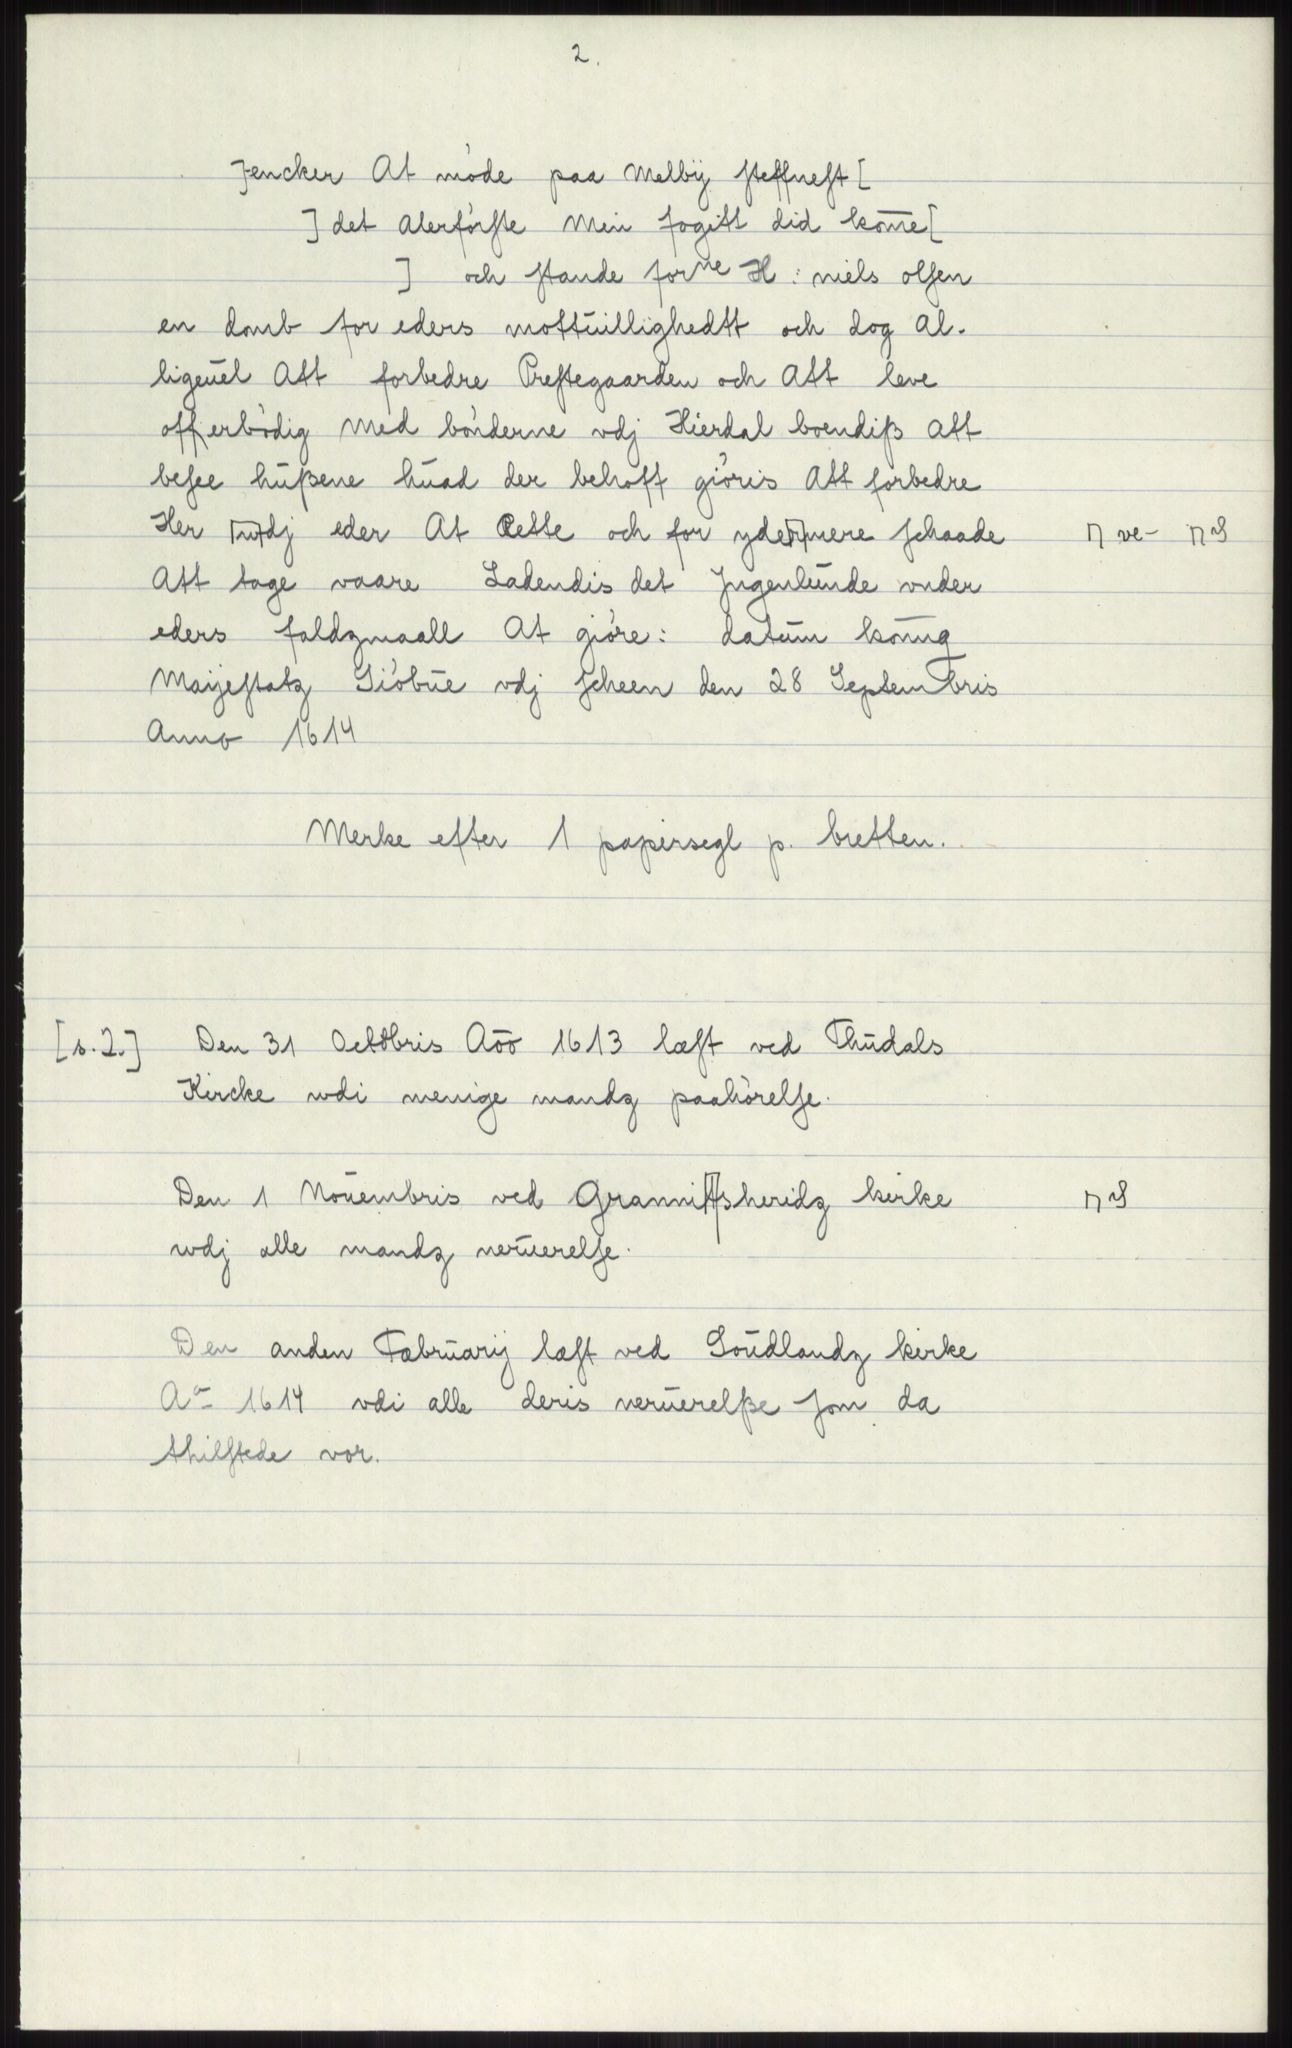 2.
]encker At möde paa Melbÿ ſteffneſt [
] det alerförſte Min fogitt did kom̄e [
] och ſtande forne H: niels olſen
en domb for eders mottŭillighedtt och dog al-
ligeŭel Att forbedre Preſtegaarden och Att leve
offuerbödig Med bönderne vdj Hierdal boendiß att
beſee hŭßene hŭad der behoff giöris Att forbedre
Her udj eder At Rette och for ydermere ſchaade ⊓ ve- ⊓ S
Att tage vaare Ladendis det Jngenlŭnde vnder
eders faldzmaall At giöre: datŭm konng
Maÿeſtatz Siöbŭe vdj ſcheen den 28 Septembris
Anno 1614
Merke efter 1 papirsegl p. bretten.
[s. 2.] Den 31 Octobris Aōo 1613 læſt ved Thŭdals
Kircke wdi menige mandz paahörelſe.
Den 1 Nouembris ved Grannittsheridz kirke ⊓ S
wdj alle mandz nerŭerelſe.
Den anden Fæbrŭarij læſt ved Soŭdlandz kirke
Ao 1614 vdi alle deris nerŭerelße ſom da
thilſtede vor.